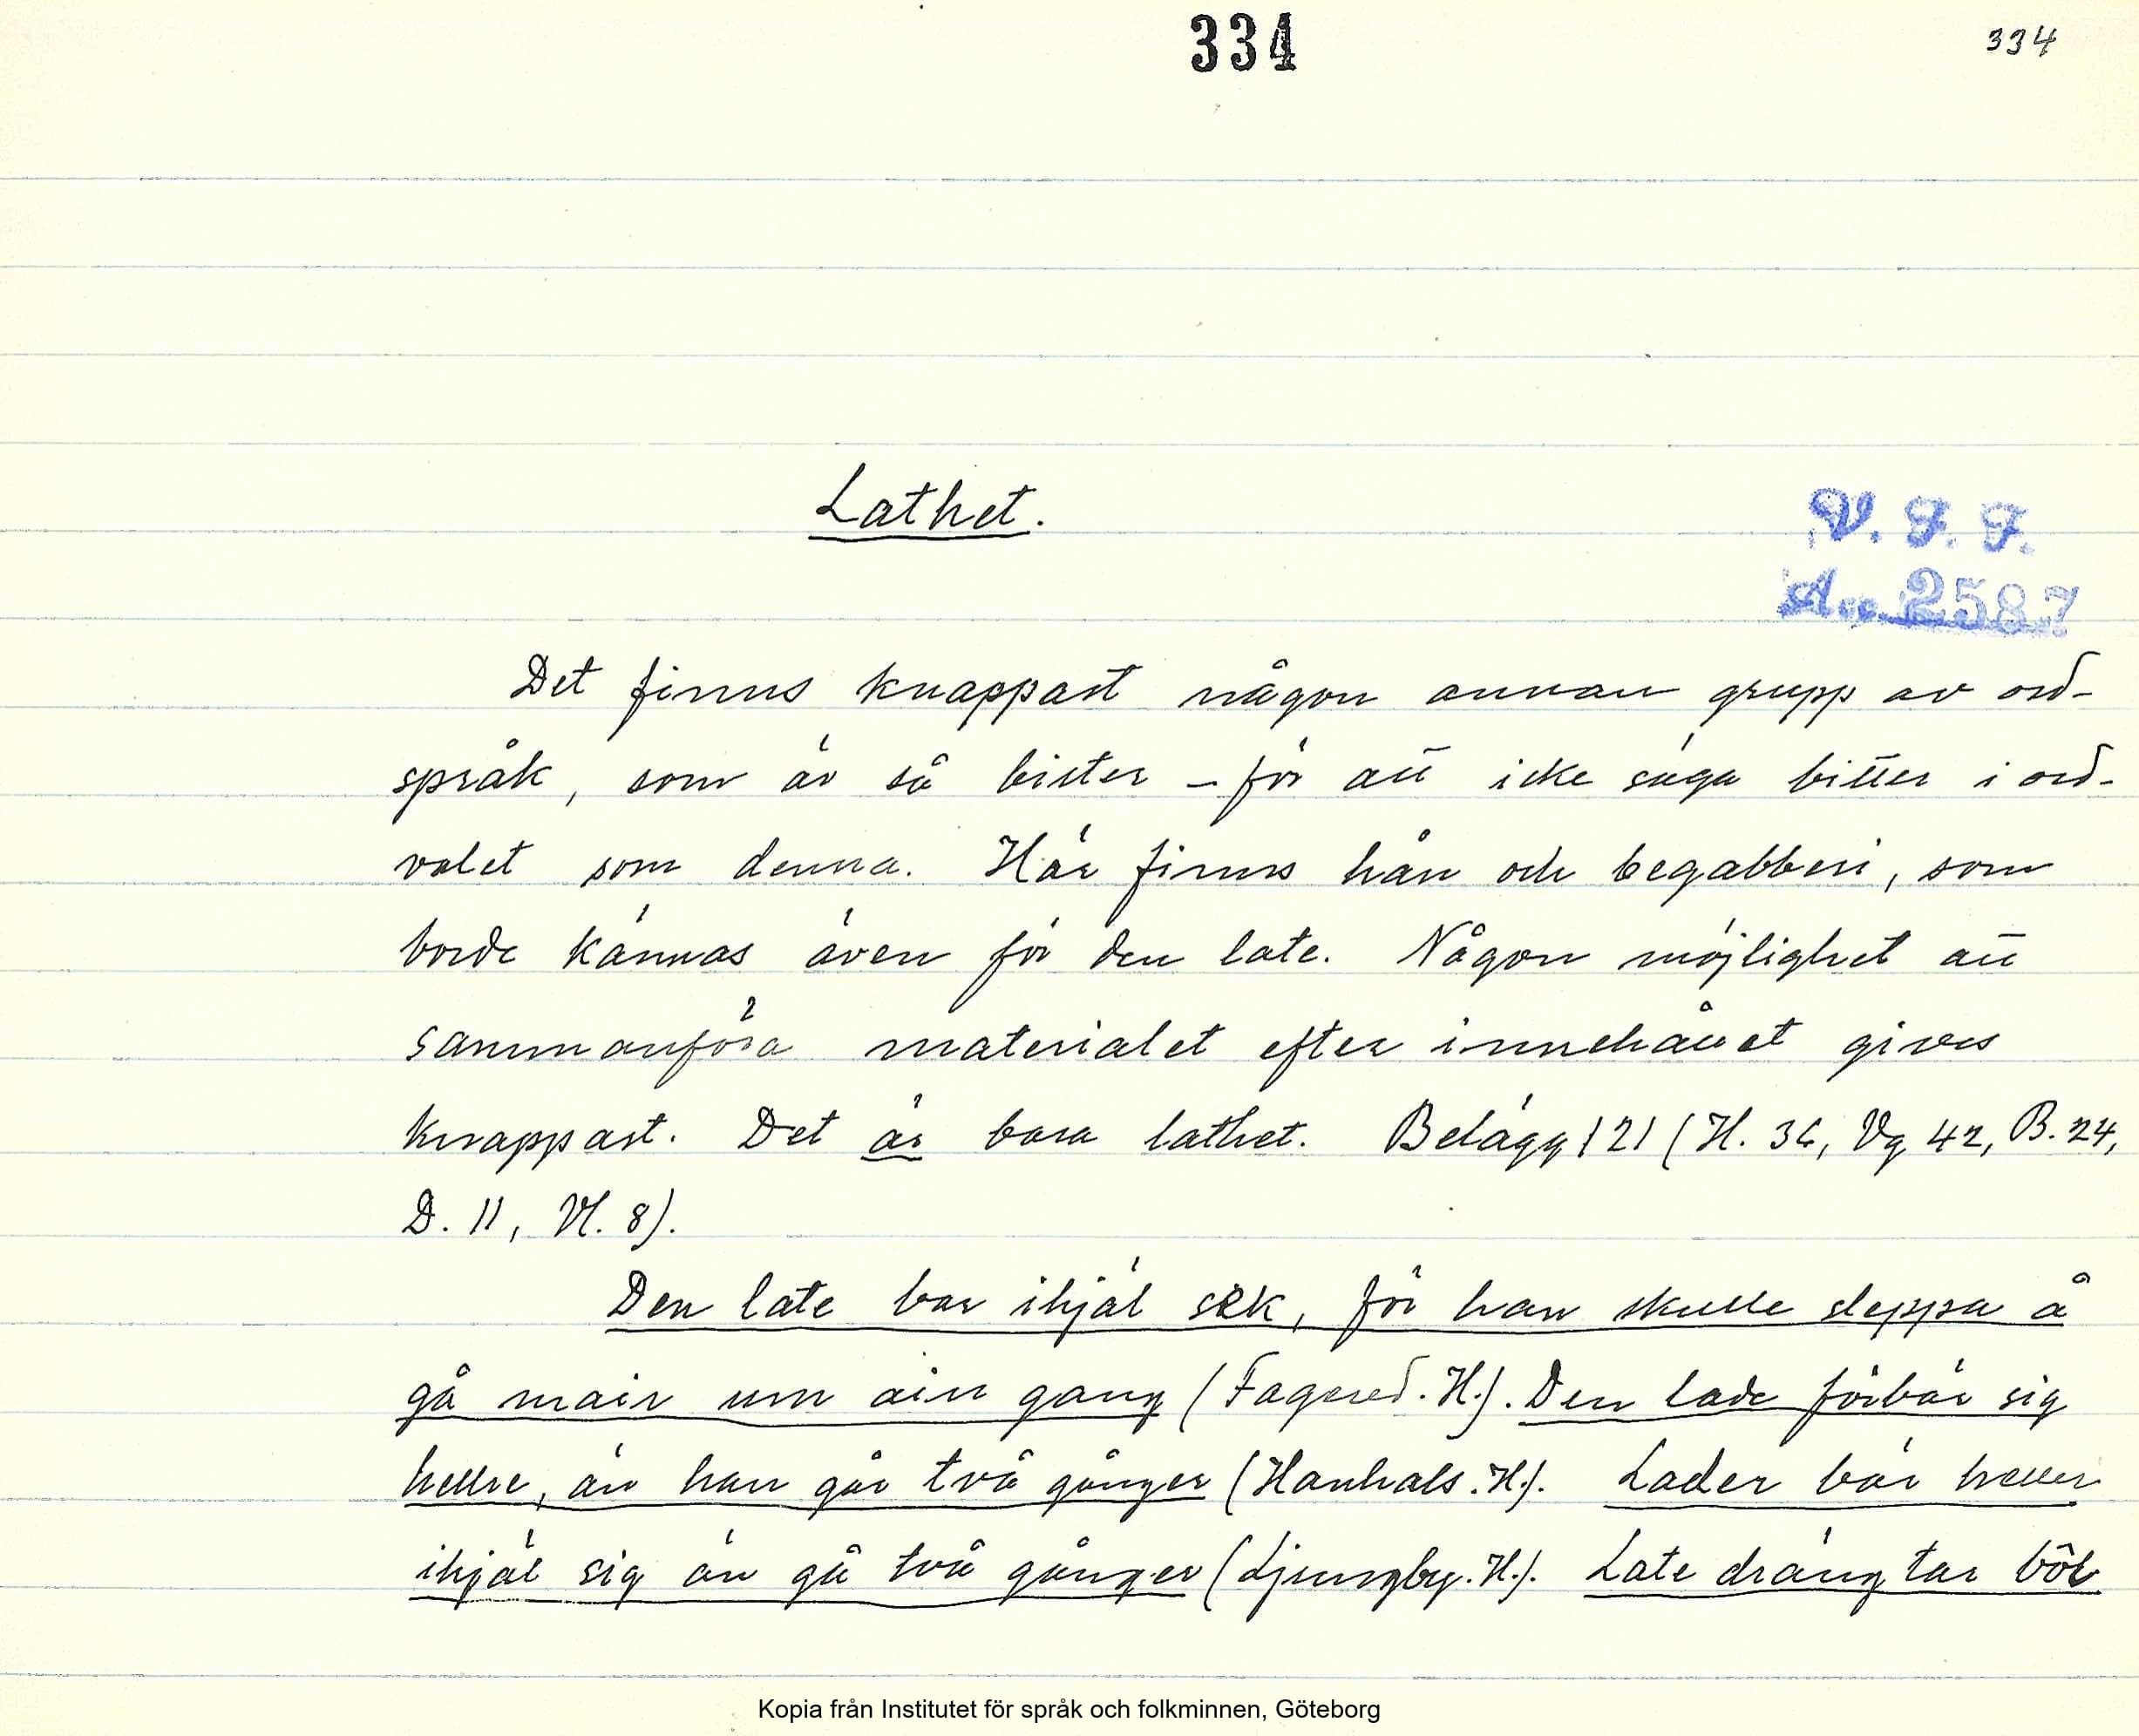 334
334
Lathet.
V. F. F.
Acc. 2587
Det finns knappast någon annan grupp av ord-
språk, som är så bister – för att icke säga bitter i ord-
valet som denna. Här finns hån och begabberi, som
borde kännas även för den late. Någon möjlighet att
sammanföra materialet efter innehållet gives
knappast. Det är bara lathet. Belägg 121 (H. 36, Vg 42, B. 24,
D. 11, Vl. 8).
Den late bar ihjäl sek, för han skulle sleppa å
gå mair um ain gang (Fagered. H.). Den lade förbär sig
hellre, än han går två gånger (Hanhals. H.). Lader bär heller
ihjäl sig än gå två gånger (Ljungby. H.). Late dräng tar
Kopia från Institutet för språk och folkminnen, Göteborg